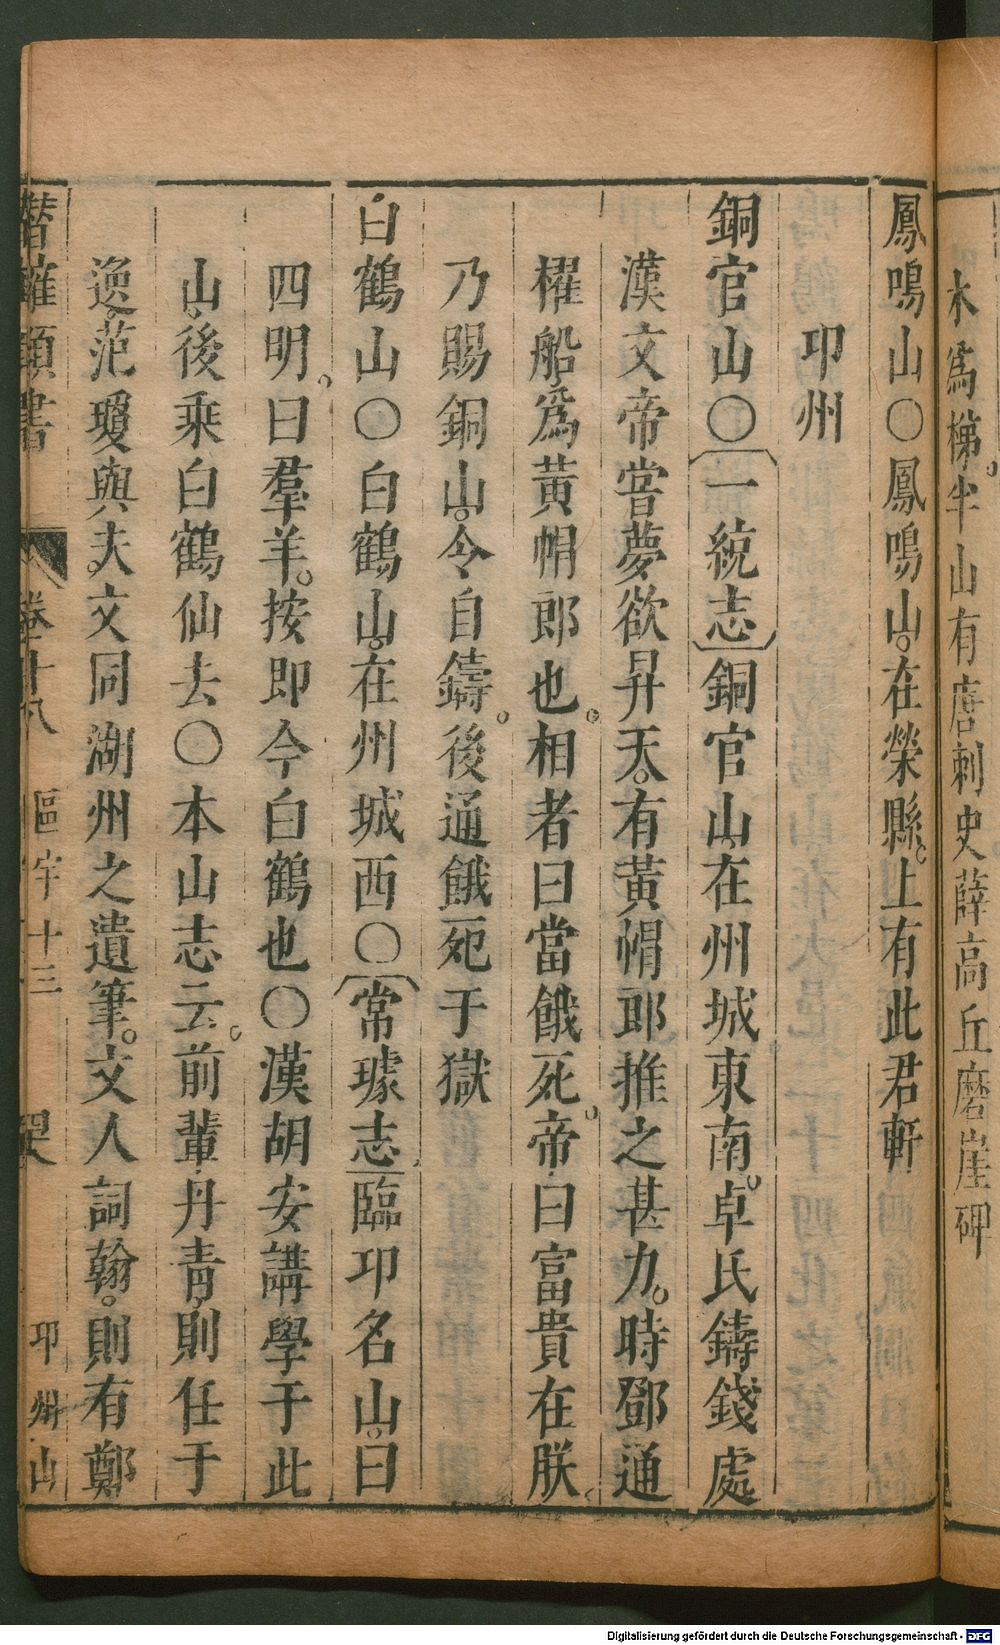 木爲梯半山有唐刺史薛高丘磨崖碑
鳳鳴山〇鳳鳴山在榮縣上有此君軒
卭州
銅官山〇〔一統志〕銅官山在州城東南卓氏鑄錢處
漢文帝嘗夢欲昇天有黃帽郎推之甚力時鄧通
櫂船爲黃帽郎也相者曰當餓死帝曰富貴在朕
乃賜銅山令自鑄後通餓死于獄
白鶴山〇白鶴山在州城西〇〔常璩志〕臨卭名山曰
四明曰羣羊按即今白鶴也〇漢胡安講學于此
山後乘白鶴仙去〇本山志云前輩丹青則任于
逸范瓊與夫文同湖州之遺筆文人詞翰則有鄭
潛確類書 卷十八 區宇十三 卭州山
Digitalisierung gefördert durch die Deutsche Forschungsgemeinschaft - DFG